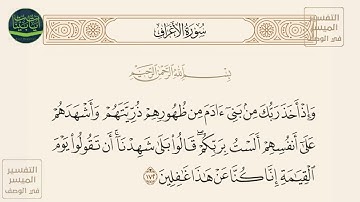 سُورَةُ الأَعْرَافِ
التفسير
الميسر
في الوصف
بِسْمِ اللَّهِ الرَّحْمَٰنِ الرَّحِيمِ
وَإِذْ أَخَذَ رَبُّكَ مِنۢ بَنِىٓ ءَادَمَ مِن ظُهُورِهِمْ ذُرِّيَّتَهُمْ وَأَشْهَدَهُمْ
عَلَىٰٓ أَنفُسِهِمْ أَلَسْتُ بِرَبِّكُمْ ۖ قَالُوا۟ بَلَىٰ ۛ شَهِدْنَآ ۛ أَن تَقُولُوا۟ يَوْمَ
ٱلْقِيَـٰمَةِ إِنَّا كُنَّا عَنْ هَـٰذَا غَـٰفِلِينَ ١٧٢
التفسير
الميسر
في الوصف